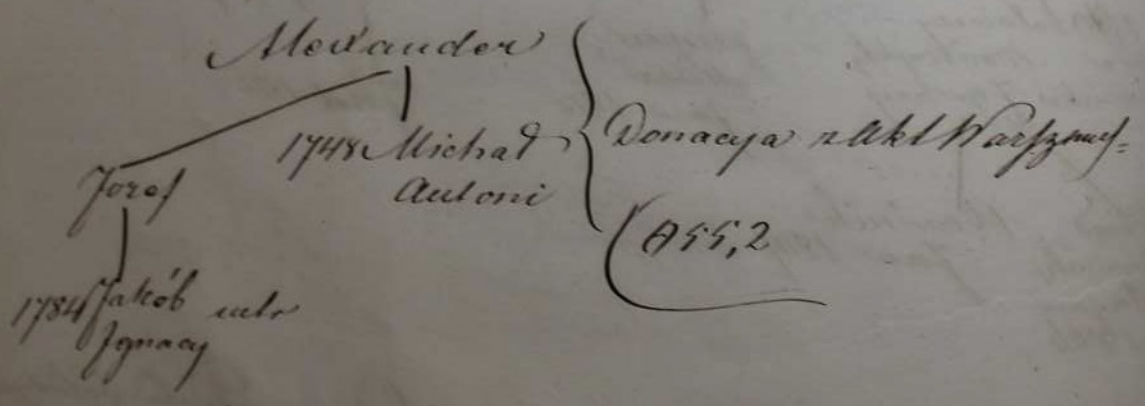 Alexander
1748 Michał
Antoni
Donacya z Akt Warszaws=
Jozef
A 55,2
1784 Jakób
Ignacy